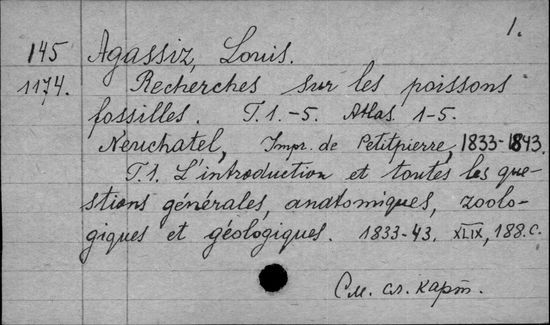 1.
145 Agassiz, Louis.
1174. Recherches sur les poissons
fossilles. T.1.-5. Atlas 1-5.
Neuchatel, Impr. de Petitpierre, 1833-1843.
T.1. L'introduction et toutes les que-
stions générales, anatomiques, zoolo-
giques et géologiques. 1833-43. XLIX, 188.c.
См. сл. карт.